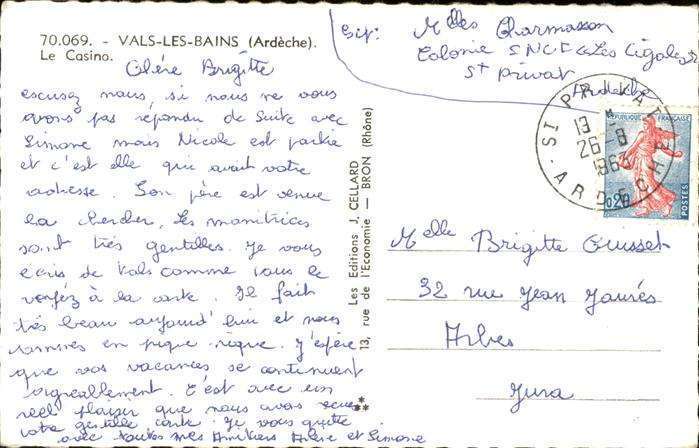 70.069. - VALS-LES-BAINS (Ardèche).
Le Casino.
Chère Brigitte
escusez nous, si nous ne vous
avons pas répondu de suite avec
Simone mais Nicole est partie
et c'est elle qui avait votre
adresse. Son père est venue
la chercher, les monitrices
sont très gentilles. Je vous
écris de Vals comme vous le
voyez à la carte. Il fait
très beau aujourd'hui et nous
sommes en pique nique. J'espère
que vos vacances se continuent
agréablement. C'est avec un
réel plaisir que nous avons reçu
votre gentille carte. Je vous quitte
avec toutes mes Amitiés et Simone
Les Editions J. CELLARD
13, rue de l'Economie - BRON (Rhône)
Melles Charmasson
Colonie SNCF Les Cigales
St Privat
Ardèche
ST PRIVAT
13 H
26-8
1963
ARDECHE
REPUBLIQUE FRANÇAISE
0,20
POSTES
Melle Brigitte Ousset
32 rue Jean Jaurès
Jura